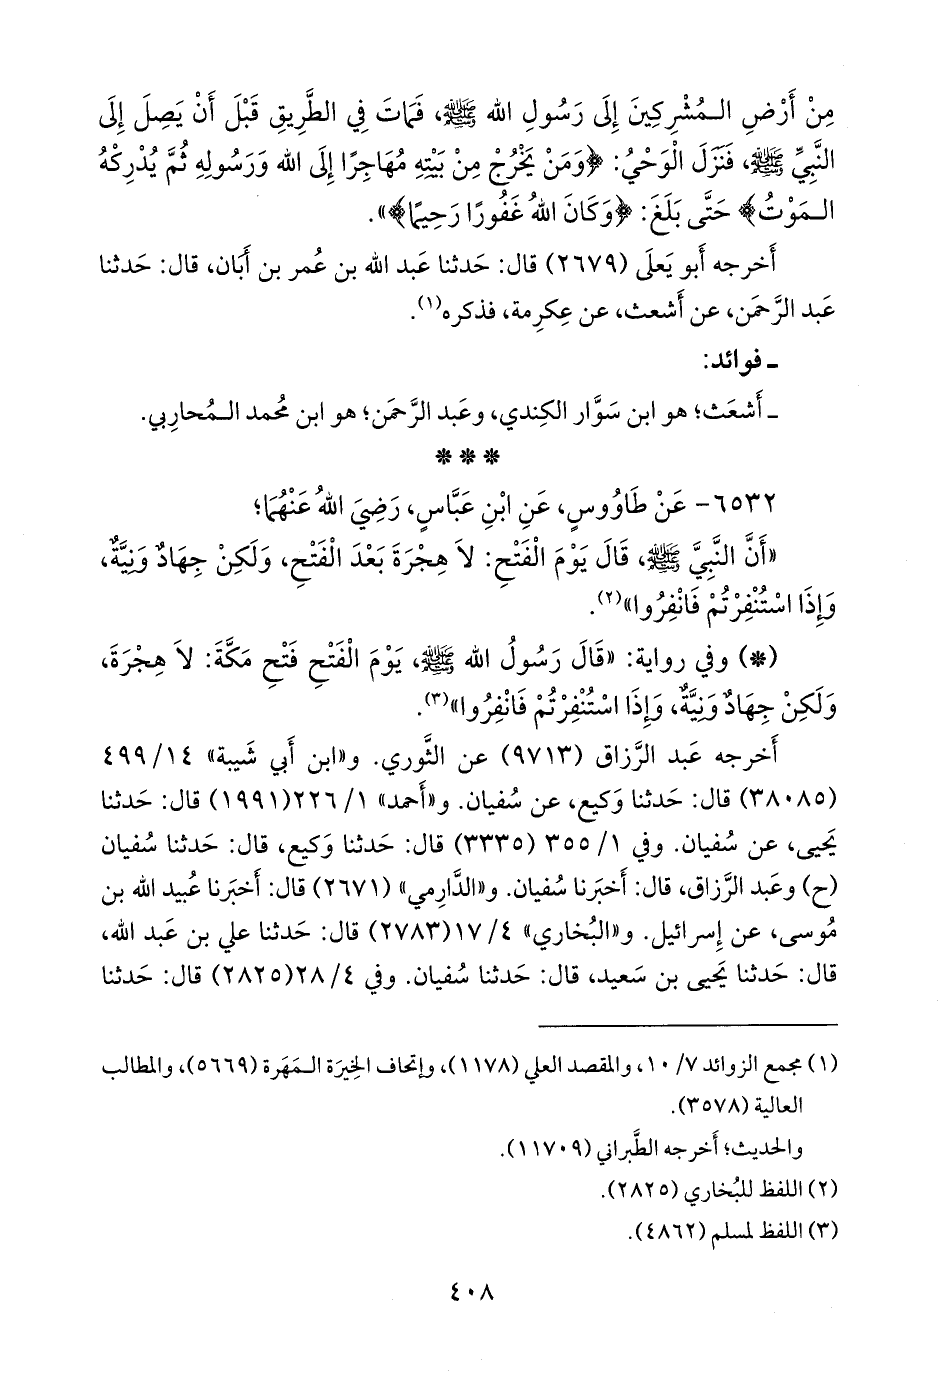 مِنْ أَرْضِ الـمُشْرِكِينَ إِلَى رَسُولِ الله ﷺ، فَمَاتَ فِي الطَّرِيقِ قَبْلَ أَنْ يَصِلَ إِلَى
النَّبِيِّ ﷺ، فَنَزَلَ الْوَحْيُ: ﴿وَمَنْ يَخْرُجْ مِنْ بَيْتِهِ مُهَاجِرًا إِلَى الله وَرَسُولِهِ ثُمَّ يُدْرِكْهُ
الـمَوْتُ﴾ حَتَّى بَلَغَ: ﴿وَكَانَ اللهُ غَفُورًا رَحِيمًا﴾».
أَخرجه أَبو يَعلَى (٢٦٧٩) قال: حَدثنا عَبد الله بن عُمر بن أَبان، قال: حَدثنا
عَبد الرَّحمَن، عن أَشعث، عن عِكرِمة، فذكره(١).
ـ فوائد:
ـ أَشعَث؛ هو ابن سَوَّار الكِندي، وعَبد الرَّحمَن؛ هو ابن مُحمد الـمُحاربي.
* * *
٦٥٣٢- عَنْ طَاوُوسٍ، عَنِ ابْنِ عَبَّاسٍ، رَضِيَ اللهُ عَنْهُمَا؛
«أَنَّ النَّبِيَّ ﷺ، قَالَ يَوْمَ الْفَتْحِ: لاَ هِجْرَةَ بَعْدَ الْفَتْحِ، وَلَكِنْ جِهَادٌ وَنِيَّةٌ،
وَإِذَا اسْتُنْفِرْتُمْ فَانْفِرُوا»(٢).
(*) وفي رواية: «قَالَ رَسُولُ الله ﷺ، يَوْمَ الْفَتْحِ فَتْحِ مَكَّةَ: لاَ هِجْرَةَ،
وَلَكِنْ جِهَادٌ وَنِيَّةٌ، وَإِذَا اسْتُنْفِرْتُمْ فَانْفِرُوا»(٣).
أَخرجه عَبد الرَّزاق (٩٧١٣) عن الثَّوري. و«ابن أَبي شَيبة» ١٤/ ٤٩٩
(٣٨٠٨٥) قال: حَدثنا وَكيع، عن سُفيان. و«أَحمد» ١/ ٢٢٦(١٩٩١) قال: حَدثنا
يَحيى، عن سُفيان. وفي ١/ ٣٥٥ (٣٣٣٥) قال: حَدثنا وَكيع، قال: حَدثنا سُفيان
(ح) وعَبد الرَّزاق، قال: أَخبَرنا سُفيان. و«الدَّارِمي» (٢٦٧١) قال: أَخبَرنا عُبيد الله بن
مُوسى، عن إِسرائيل. و«البُخاري» ٤/ ١٧(٢٧٨٣) قال: حَدثنا علي بن عَبد الله،
قال: حَدثنا يَحيى بن سَعيد، قال: حَدثنا سُفيان. وفي ٤/ ٢٨(٢٨٢٥) قال: حَدثنا
(١) مجمع الزوائد ٧/ ١٠، والمقصد العلي (١١٧٨)، وإتحاف الخِيرَة الـمَهَرة (٥٦٦٩)، والمطالب
العالية (٣٥٧٨).
والحديث؛ أَخرجه الطَّبراني (١١٧٠٩).
(٢) اللفظ للبُخاري (٢٨٢٥).
(٣) اللفظ لمسلم (٤٨٦٢).
٤٠٨